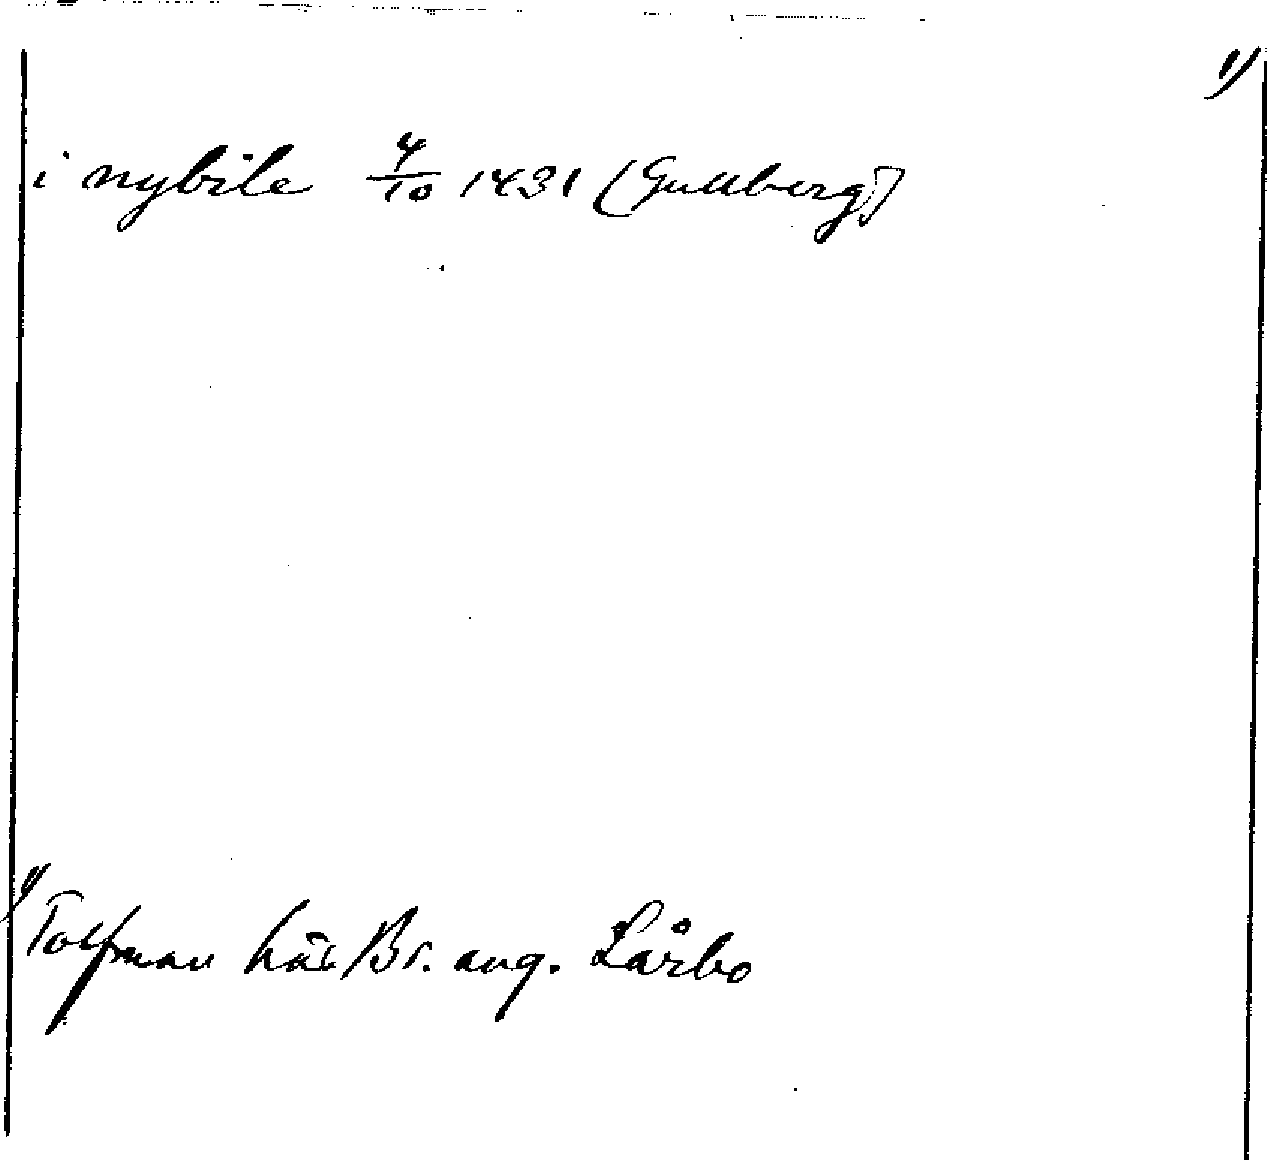 1)
i nybile 4/10 1431 (Gullberg)
1) Tolfman här Br. ang. Lårbo